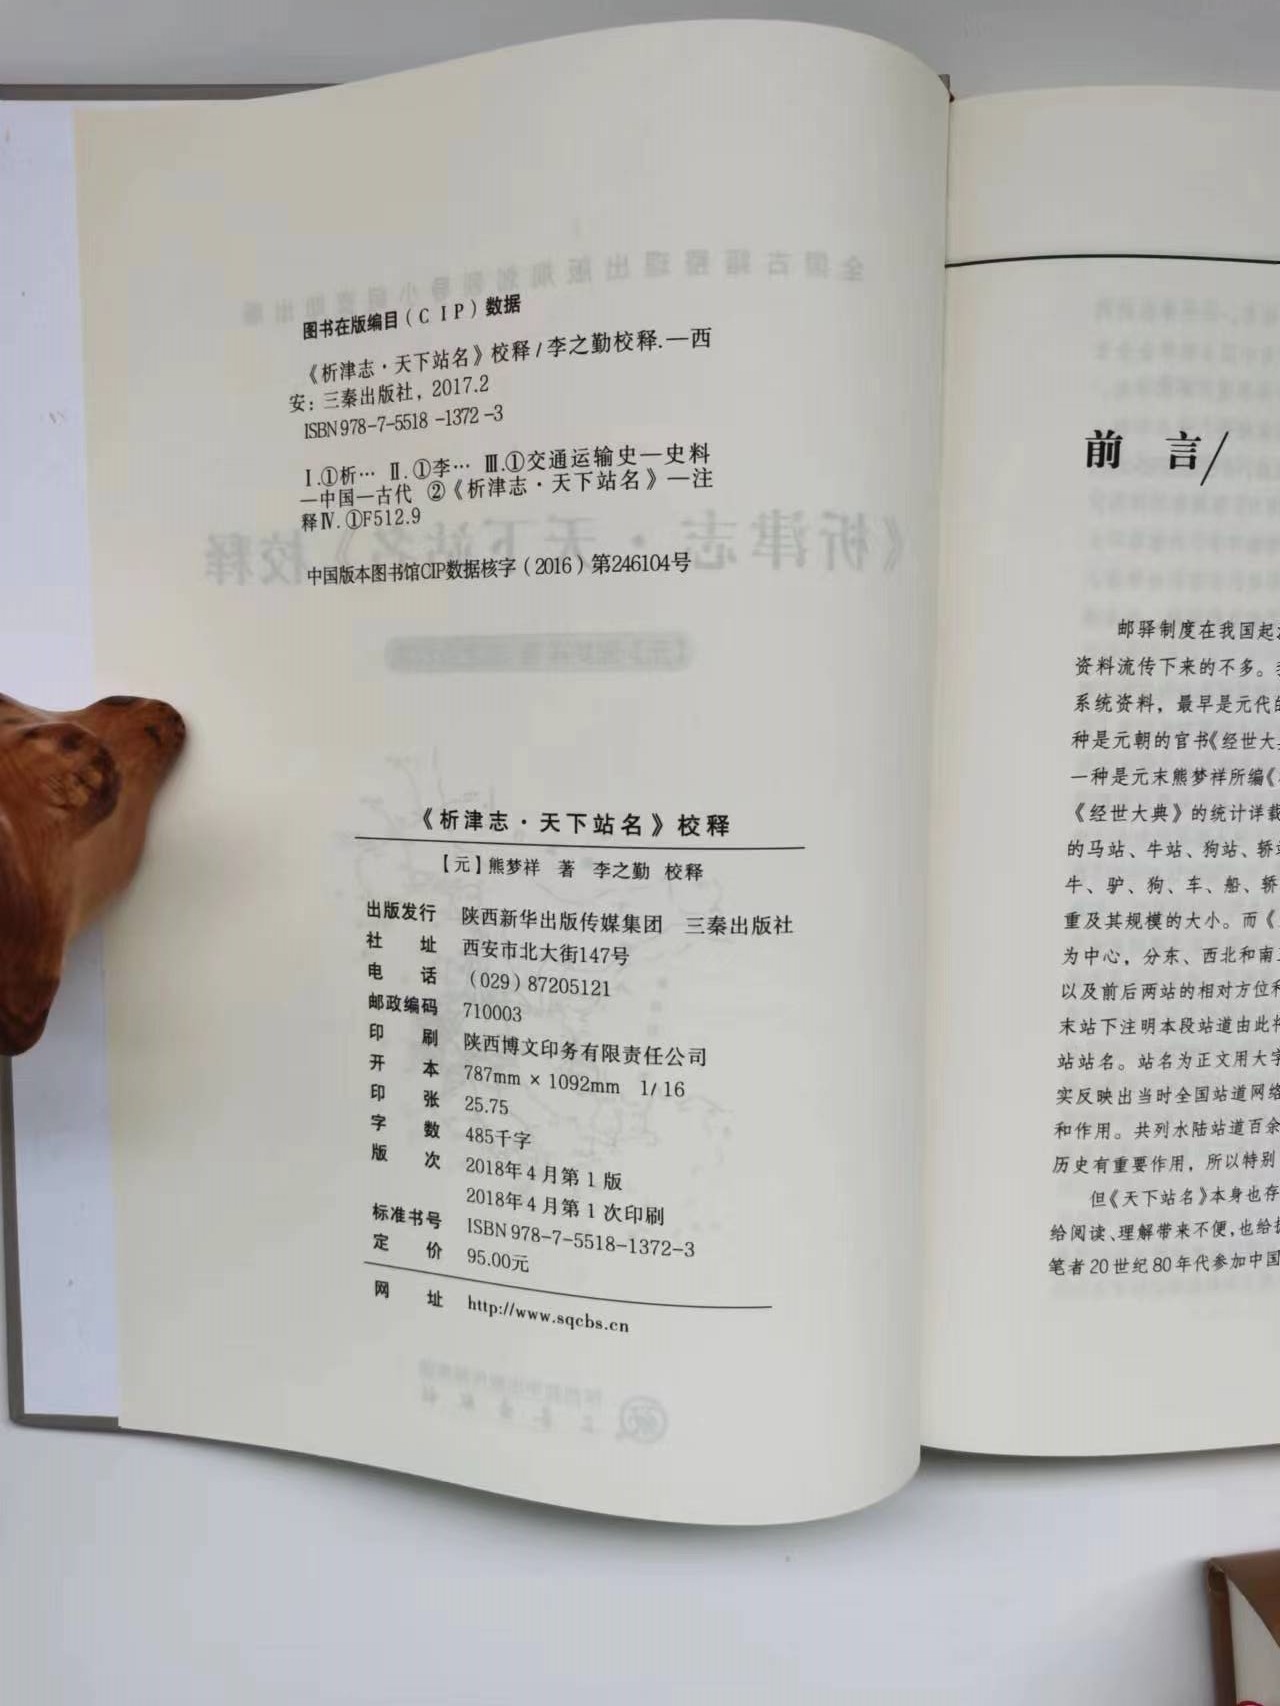 图书在版编目(CIP)数据
《析津志·天下站名》校释/李之勤校释.—西
安:三秦出版社,2017.2
ISBN 978-7-5518-1372-3
Ⅰ.①析… Ⅱ.①李… Ⅲ.①交通运输史—史料
—中国—古代 ②《析津志·天下站名》—注
释Ⅳ.①F512.9
中国版本图书馆CIP数据核字(2016)第246104号
《析津志·天下站名》校释
【元】熊梦祥 著 李之勤 校释
出版发行 陕西新华出版传媒集团 三秦出版社
社 址 西安市北大街147号
电 话 (029)87205121
邮政编码 710003
印 刷 陕西博文印务有限责任公司
开 本 787mm×1092mm 1/16
印 张 25.75
字 数 485千字
版 次 2018年4月第1版
2018年4月第1次印刷
标准书号 ISBN 978-7-5518-1372-3
定 价 95.00元
网 址 http://www.sqcbs.cn
前 言/
邮驿制度在我国起
资料流传下来的不多。
系统资料,最早是元代的
种是元朝的官书《经世大
一种是元末熊梦祥所编《
《经世大典》的统计详载
的马站、牛站、狗站、轿
牛、驴、狗、车、船、轿
重及其规模的大小。而《
为中心,分东、西北和南
以及前后两站的相对方位
末站下注明本段站道由此
站站名。站名为正文用大字
实反映出当时全国站道网络
和作用。共列水陆站道百余
历史有重要作用,所以特别
但《天下站名》本身也存
给阅读、理解带来不便,也给
笔者20世纪80年代参加中国